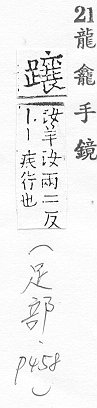 21
龍龕手鏡
躟
汝羊汝兩二反
丨丨疾行也
(足部、P458)